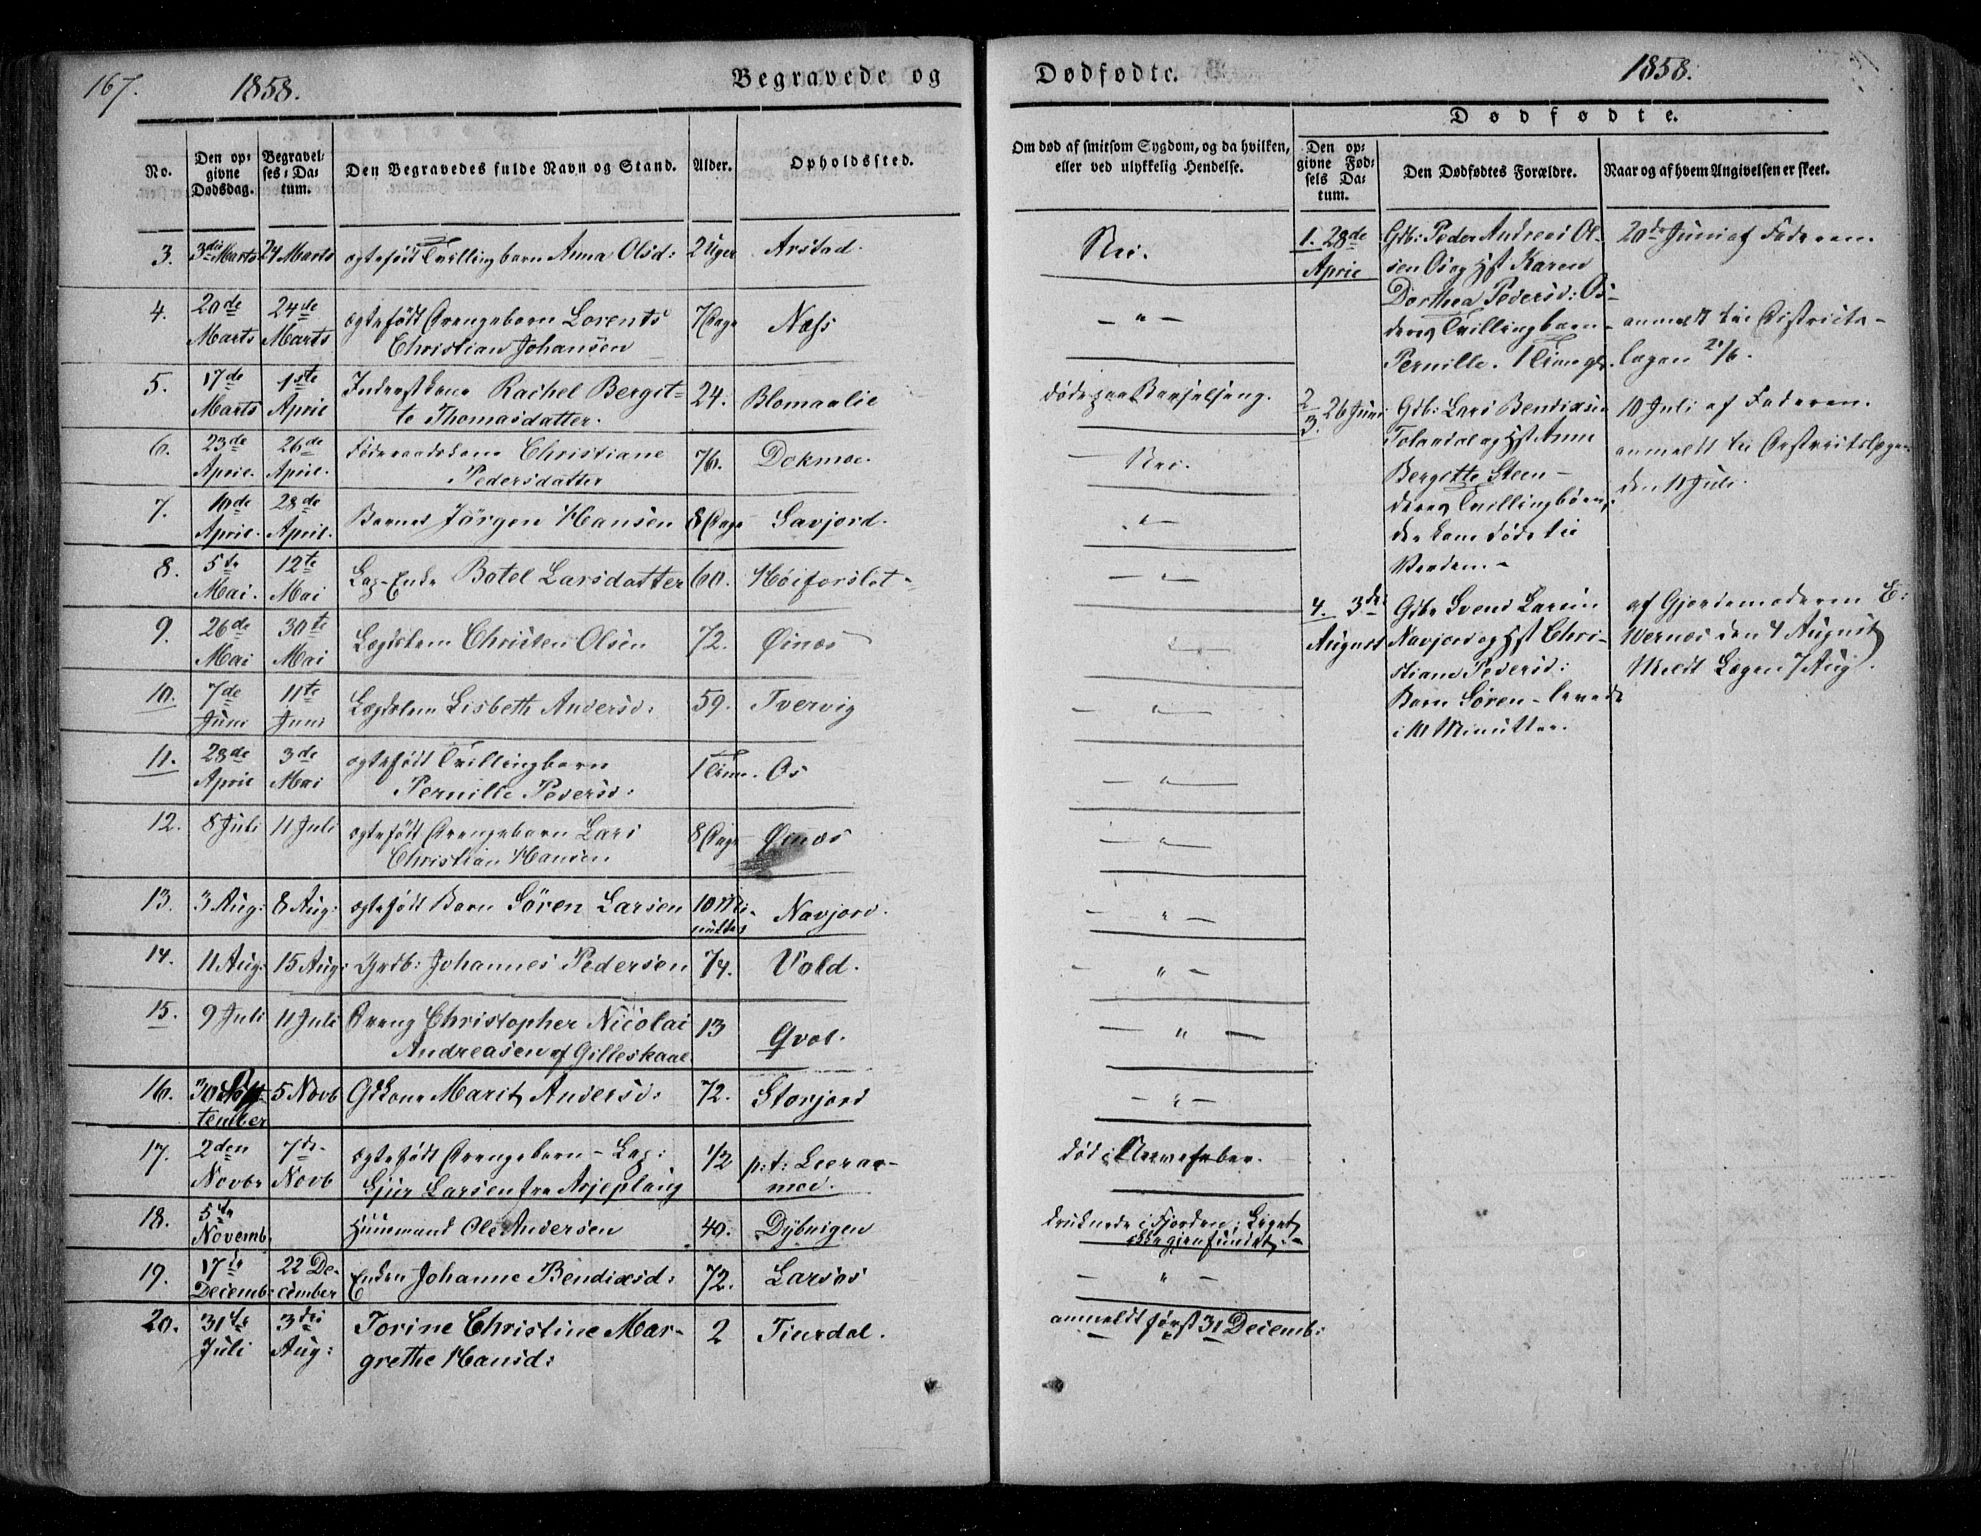 167.
1858.
Begravede og
No.
Den op-
givne
Dødsdag.
Begravel-
ses-Da-
tum.
Den Begravedes fulde Navn og Stand.
Alder.
Opholdssted.
3. 3die Marts 24 Marts ægtefødt Tvillingbarn Anna Olsd: 2 Uger Arstad
4. 20de Marts 24de Marts ægtefødt Drengebarn Lorents
Christian Johansen 7 Dage Næss
5. 17de Marts 1ste April Rachel Bergit-
te Thomasdatter. 24. Blomaalie
6. 23de April. 26de April. Føderaadskone Christiane
Pedersdatter 76. Dokmoe.
7. 10de April. 28de April. Barnet Jörgen Hansen 8 Dage Savjord.
8. 5te Mai. 12te Mai Lag-Enke Botel Larsdatter 60. Høiforslet
9. 26de Mai 30te Mai Lægdslem Christen Olsen 72. Øinæs
10. 7de Juni 11te Juni Lægdslem Lisbeth Andersd: 59. Tvervig
11. 28de April 3de Mai ægtefødt Tvillingbarn
Pernille Pedersd: 1 Time. Os
12. 8 Juli 11 Juli ægtefødt Drengebarn Lars
Christian Hansen 8 Dage Øinæs
13. 3 Aug: 8 Aug: ægtefødt Barn Sören Larsen 10 Mi-
nutter Navjord.
14. 11 Aug: 15 Aug: Grdb: Johannes Pedersen 74. Vold.
15. 9 Juli 11 Juli Dreng Christopher Nicolai
Andreasen af Gilleskaal 13 Qval.
16. 30 Sept
tember 5 Novb Gdkone Marit Andersd: 72. Storjord
17. 2den Novbr 7de Novb ægtefødt Drengebarn - Lap:
Sjur Larsen fra Arjeplaug 1/2 p:t: Leeraa-
moe.
18. 5te Novemb. Huusmand Ole Andersen 40. Dybvigen
19. 17de Decemb: 22 De-
cember Enken Johanne Bendixsd: 72. Larsos
20. 31te Juli 3die Aug: Torine Christine Mar-
grethe Hansd: 2 Tiurdal.
Dødfødte.
1858.
Om død af smitsom Sygdom, og da hvilken,
eller ved ulykkelig Hendelse.
Dødfødte.
Den op-
givne Fød-
sels Da-
tum.
Den Dødfødtes Forældre.
Naar og af hvem Angivelsen er skeet.
Nei.
— " —
døde paa Barselseng.
Nei.
— " —
— " —
— " —
— " —
— " —
— " —
— " —
— " —
— " —
— " —
død i Nervefeber.
druknede i Fjorden; Liget
ikke gjenfundet.
— " —
anmeldt først 31 Decemb:
1. 28de
April
Gdb: Peder Andreas Ol-
sen Os og Hst Karen
Dorthea Pedersd: Os -
deres Tvillingbarn
Pernille. 1 Time gl.
20de Juni af Faderen.
anmeldt til Districts-
lægen 21/6.
2/3. 26 Juni
Gdb: Lars Bendixsen
og Hst Anne
Bergitte Steen -
deres Tvillingbørn,
der kom døde til
Verden. -
10 Juli af Faderen.
anmeldt til Districtslægen
den 11 Juli.
4. 3die
August
Gdbr Svend Larsen
Navjord og Hst Chri-
stiane Pedersd:
Barn Søren - levede
i 10 Minutter.
af Gjordemoderen E:
Wernes den 4 August
Meldt Lægen 7 Aug.